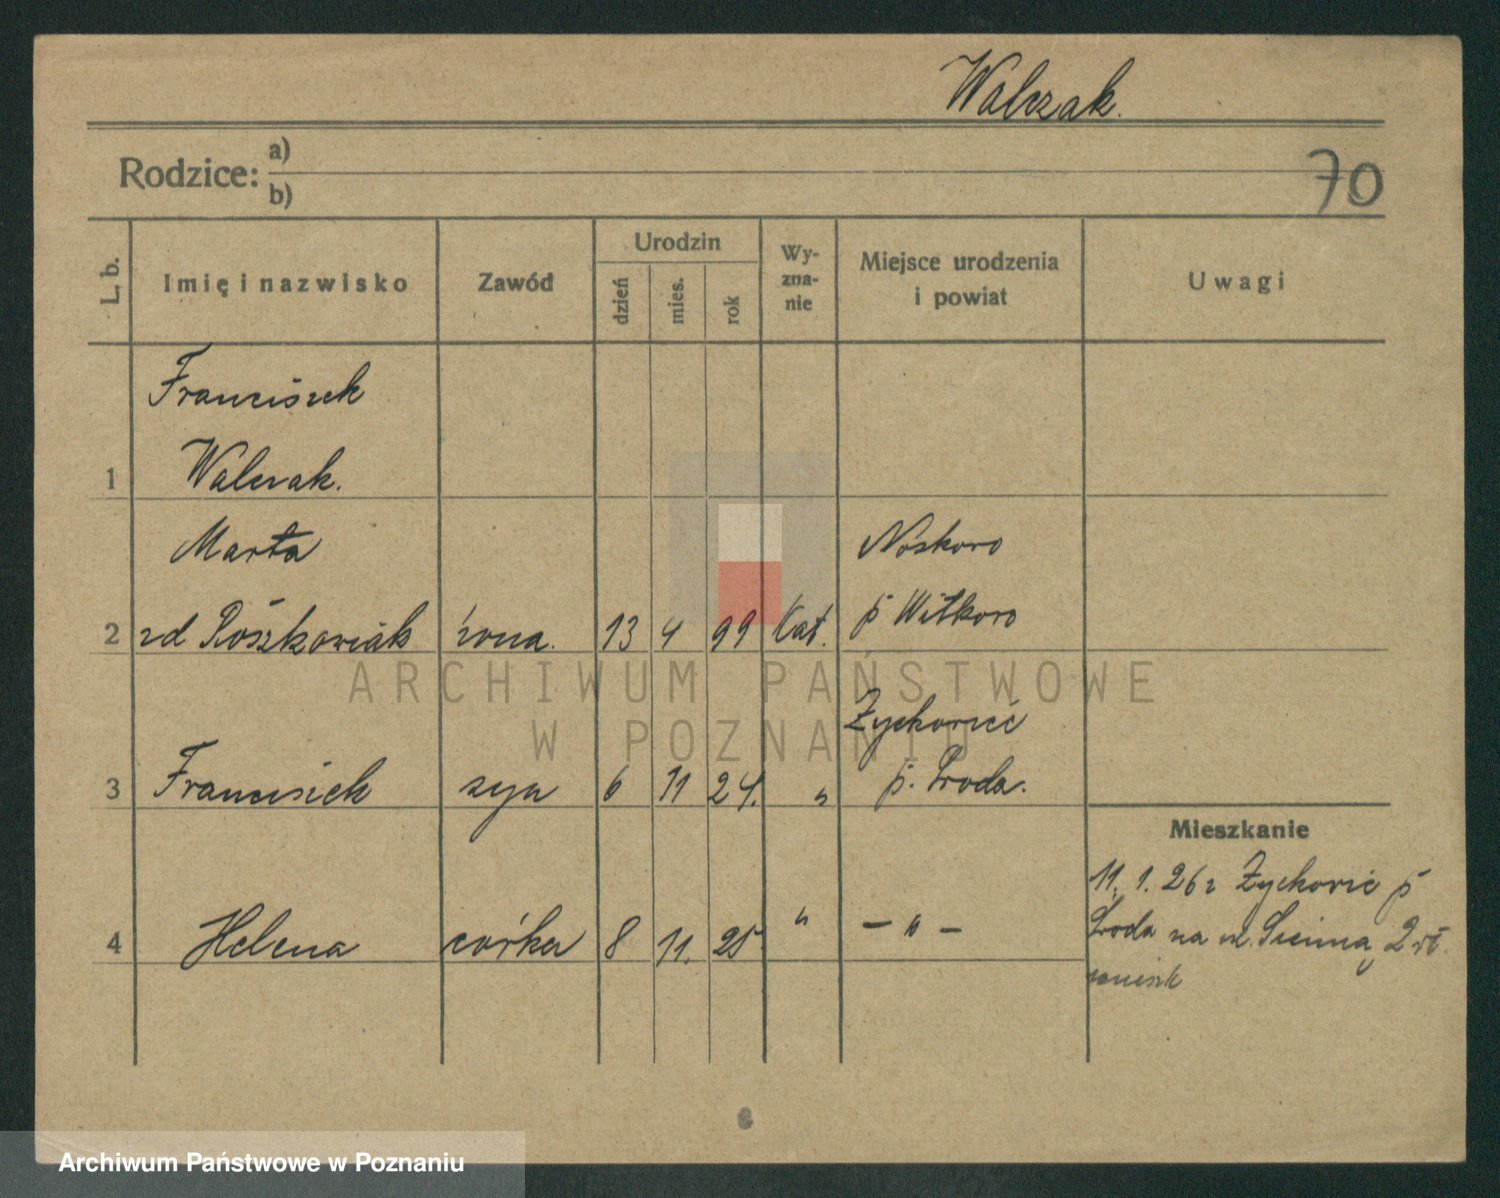 Walczak.
Rodzice: a)
b)
70
L. b.
Imię i nazwisko
Zawód
Urodzin
dzień
mies.
rok
Wy-
zna-
nie
Miejsce urodzenia
i powiat
Uwagi
Franciszek
1 Walczak.
Marta Noskowo
2 zd Roszkowiak żona. 13 4 99 Kat. p Witkowo
Żyrkowić
3 Franciszek syn 6 11 24. " p. Środa.
Mieszkanie
4 Helena córka 8 11. 25 " — " —
11. 1. 26 r p
Środa na ul. 2
ARCHIWUM PAŃSTWOWE
W POZNANIU
Archiwum Państwowe w Poznaniu